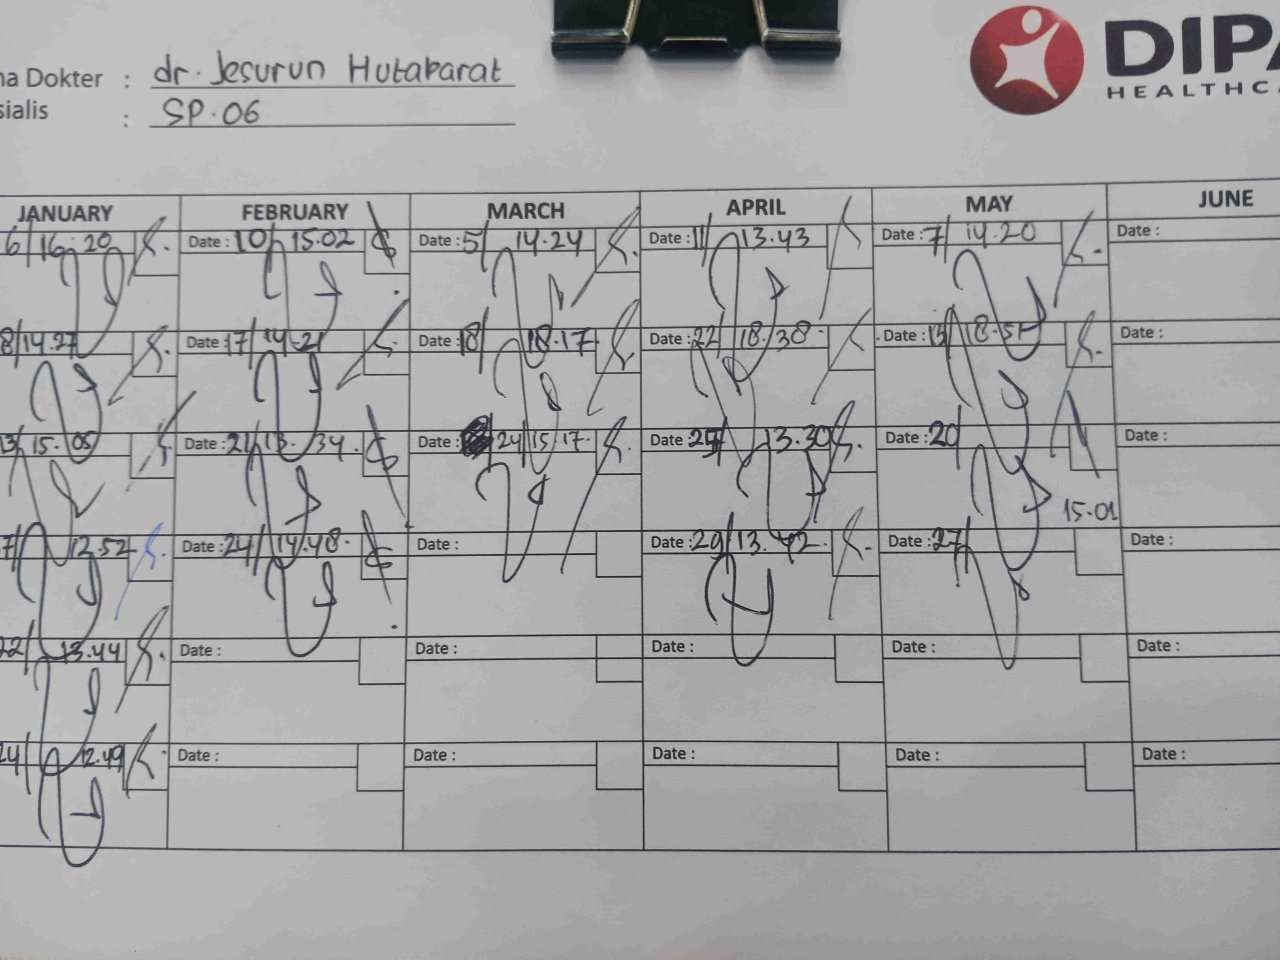 dr. Jesurun Hutabarat
na Dokter :
sialis : SP.06
DIPA
HEALTHCA
JANUARY FEBRUARY MARCH APRIL MAY JUNE
6/ 16.20 Date : 10/ 15.02 Date : 5/ 14.24 Date : 11/ 13.43 Date : 7/ 14.20 Date :
8/ 14.27 Date : 17/ 14.21 Date : 18/ 18.17 Date : 22/ 18.38 Date : 18.51 Date :
13/ 15.05 Date : 21/ 13.34 Date : 24/ 15.17 Date : 13.30 Date : 20/ Date :
15.01
7/ 12.52 Date : 24/ 14.48 Date : Date : 29/ 13.42 Date : 27/ Date :
22/ 13.44 Date : Date : Date : Date : Date :
24/ 12.49 Date : Date : Date : Date : Date :